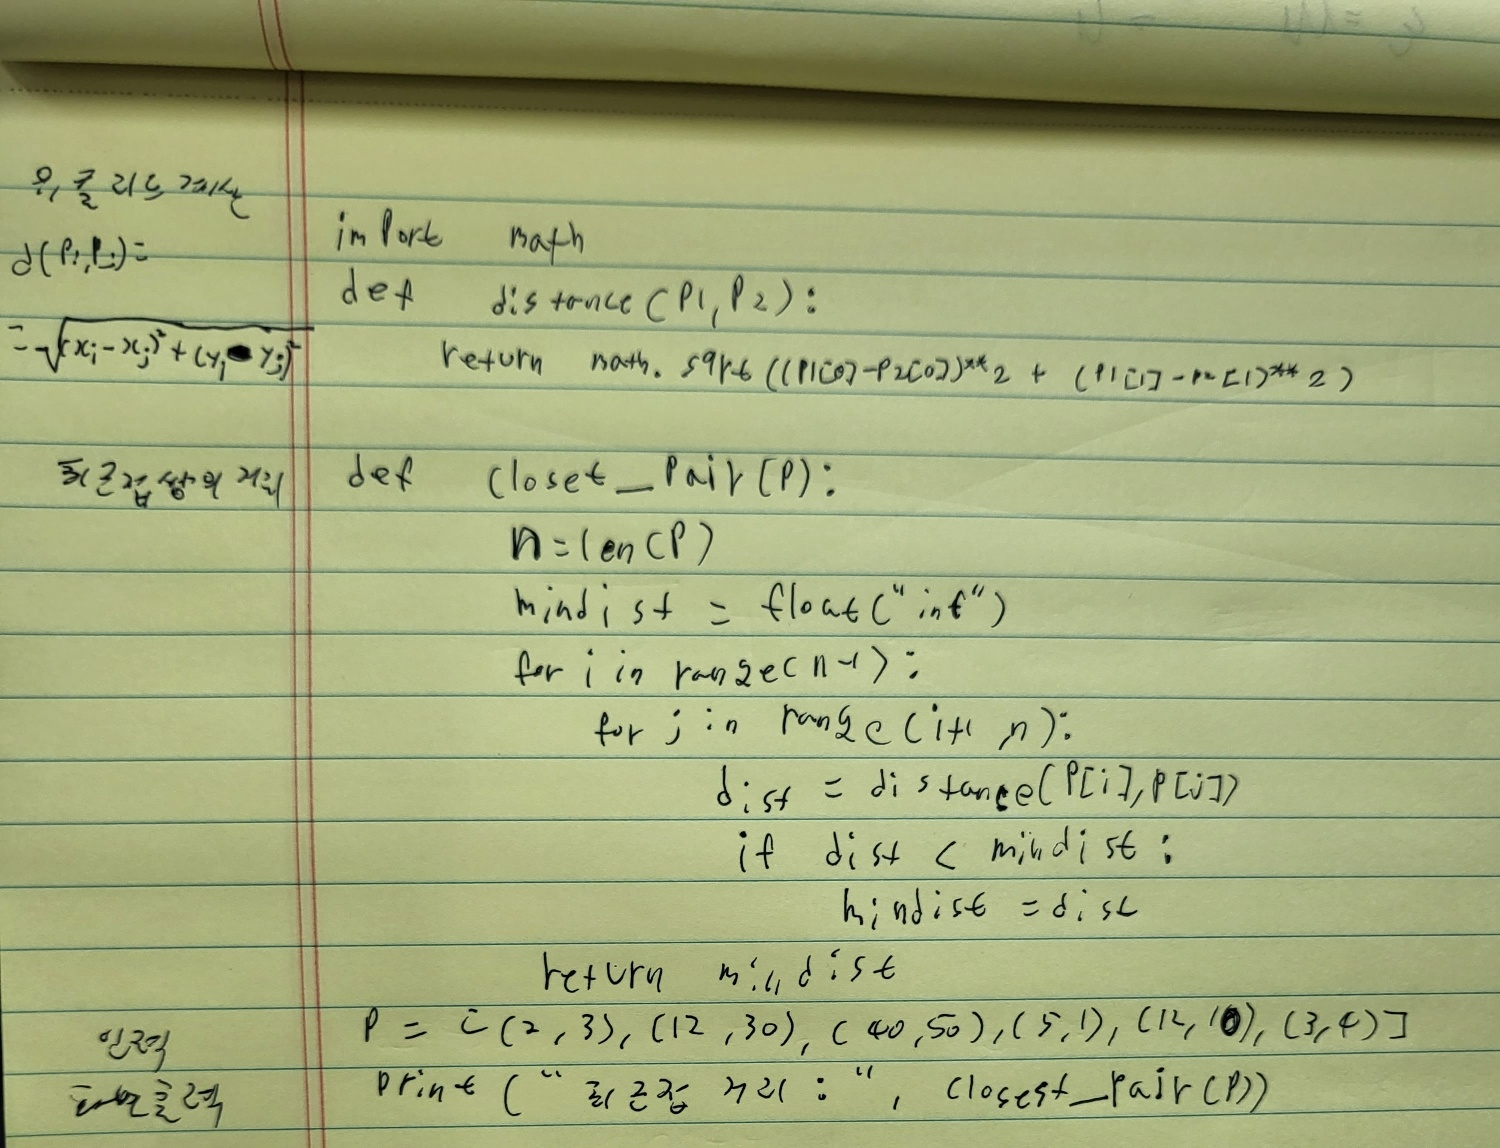 유클리드 계산
d(Pi,Pj)=
= √(xi-xj)² + (yi yj)²
import math
def distance(P1, P2):
return math.sqrt((P1[0]-P2[0])**2 + (P1[1]-P2[1)**2)
최근접 쌍의 거리
def closet_Pair(P):
n=len(P)
mindist = float("inf")
for i in range(n-1):
for j in range(i+1 n):
dist = distance(P[i],P[j])
if dist < mindist:
mindist = dist
return mindist
입력
P = [(2,3), (12,30), (40,50), (5,1), (12,10), (3,4)]
출력
print("최근접 거리:", closest_pair(P))